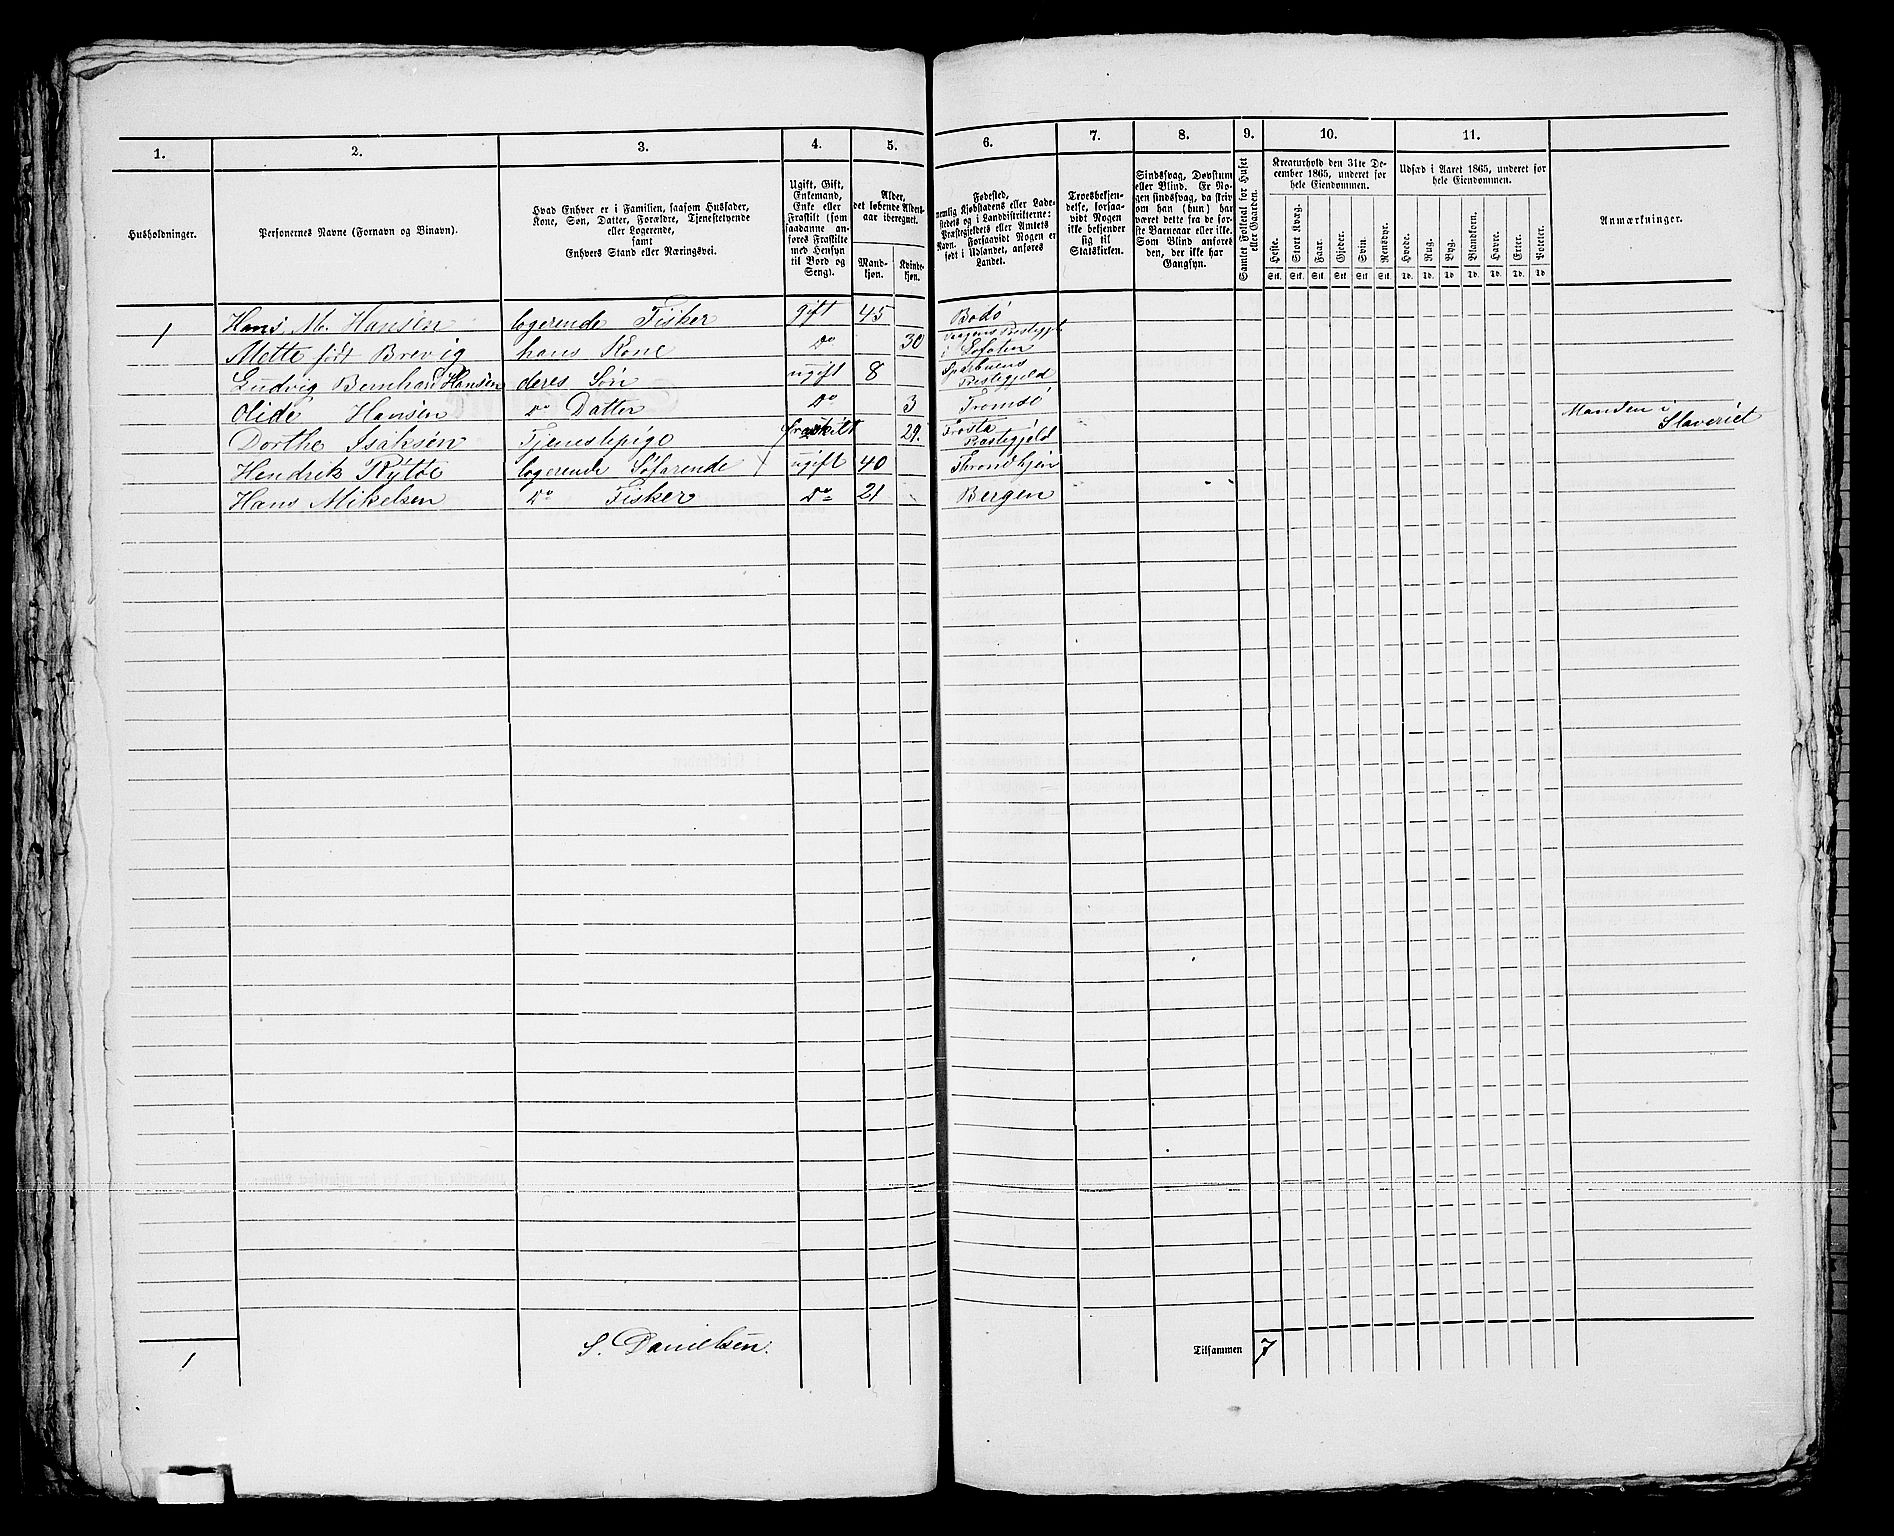 1. 2. 3. 4. 5. 6. 7. 8. 9. 10. 11.
Husholdninger.
Personernes Navne (Fornavn og Binavn).
Hvad Enhver er i Familien, saasom Husfader,
Kone, Søn, Datter, Forældre, Tjenestetyende
eller Logerende,
samt
Enhvers Stand eller Næringsvei.
Ugift, Gift,
Enkemand,
Enke eller
Fraskilt (som
saadanne an-
føres Fraskilte
med Hensyn
til Bord og
Seng).
Alder,
det løbende Alders-
aar iberegnet.
Mand-
kjøn.
Kvinde-
kjøn.
Fødested,
nemlig Kjøbstadens eller Lade-
stedets og i Landdistrikterne:
Præstegjeldets eller Amtets
Navn. Forsaavidt Nogen er
født i Udlandet, anføres
Landet.
Troesbekjen-
delse, forsaa-
vidt Nogen
ikke bekjender
sig til
Statskirken.
Sindssvag, Døvstum
eller Blind. Er No-
gen sindssvag, da skriv
om han (hun) har
været dette fra de før-
ste Barneaar eller ikke.
Som Blind anføres
den, der ikke har
Gangsyn.
Samlet Folketal for Huset
eller Gaarden.
Kreaturhold den 31te De-
cember 1865, underet for
hele Eiendommen.
Heste. Stort Kvæg. Faar. Gjeder. Svin. Rensdyr.
Stk. Stk. Stk. Stk. Stk. Stk.
Udsæd i Aaret 1865, underet for
hele Eiendommen.
Hvede. Rug. Byg. Blandkorn. Havre. Erter. Poteter.
Td. Td. Td. Td. Td. Td. Td.
Anmærkninger.
1 Hans M. Hansen logerende Fisker gift 45 Bodø
Mette født Brevig hans Kone Do 30 Vaagens Prestegjel i Lofoten
Ludvig Bernhard Hansen deres Søn ugift 8 Sparbuens Prestegjeld
Olide Hansen Do Datter Do 3 Tromsø
Dorthe Isaksen Tjenestepige fraskilt 29. Frosta Prestegjeld Manden i Slaveriet
Hendrik Rytoe logerende Søfarende ugift 40 Throndhjem
Hans Mikelsen Do Fisker Do 21 Bergen
1 S. Danielsen. Tilsammen 7